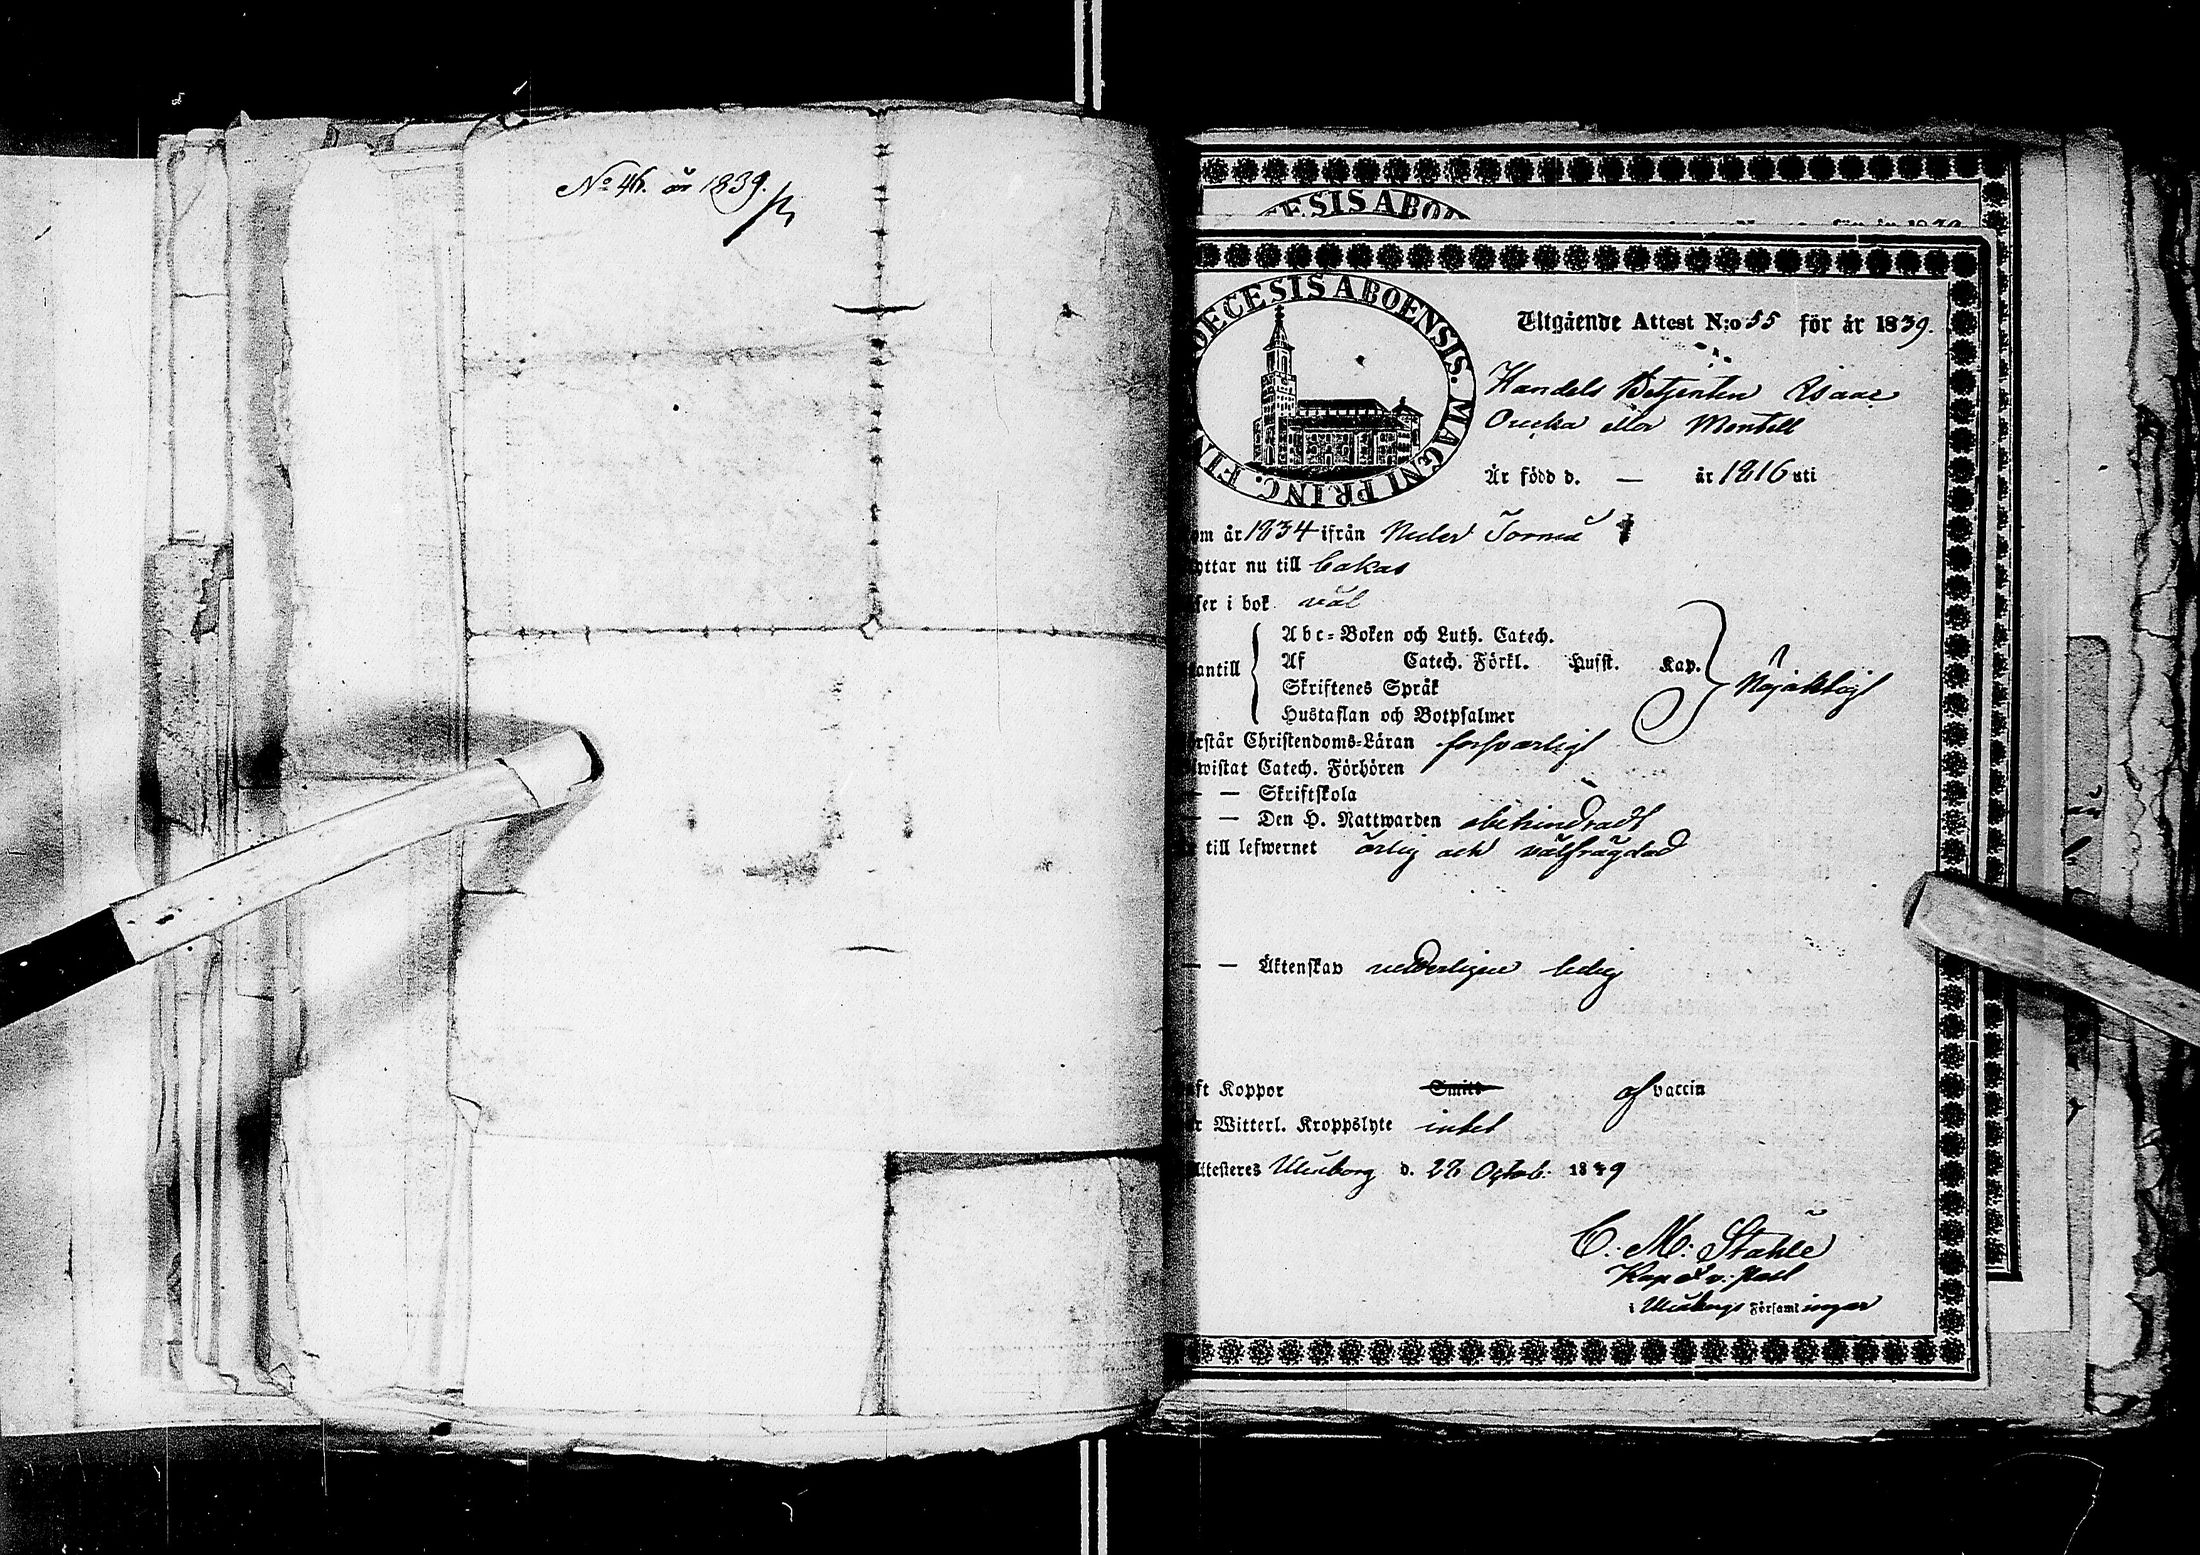 No 46. år 1839.
ESIS ABO
OECESIS ABOENSIS. MAGNI PRINC. FIN
Utgående Attest N:o 55 för år 1839.
Handels Betjenten Isaac
Orecka eller Montell
Är född d. — år 1816 uti
om år 1834 ifrån Neder Torneå
ottar nu till bakas
ser i bok väl
Abc-Boken och Luth. Catech.
antill Af Catech. Förkl. Husst. Kap. Nöjaktigt
Skriftenes Språk
Hustaflan och Botpsalmer
rstår Christendoms-Läran försvarligt
wistat Catech. Förhören
— — Skriftskola
— — Den H. Nattwarden obehindradt
till lefwernet ärlig och välfrägdad
— — Äktenskap vederligen ledig
ft Koppor Smitt af vaccin
r Witterl. Kroppslyte intet
Attesteres Uleåborg d. 28 Octob. 1839
C. M. Ståhle
Kap o v. Past
i Uleåborgs Församlingar